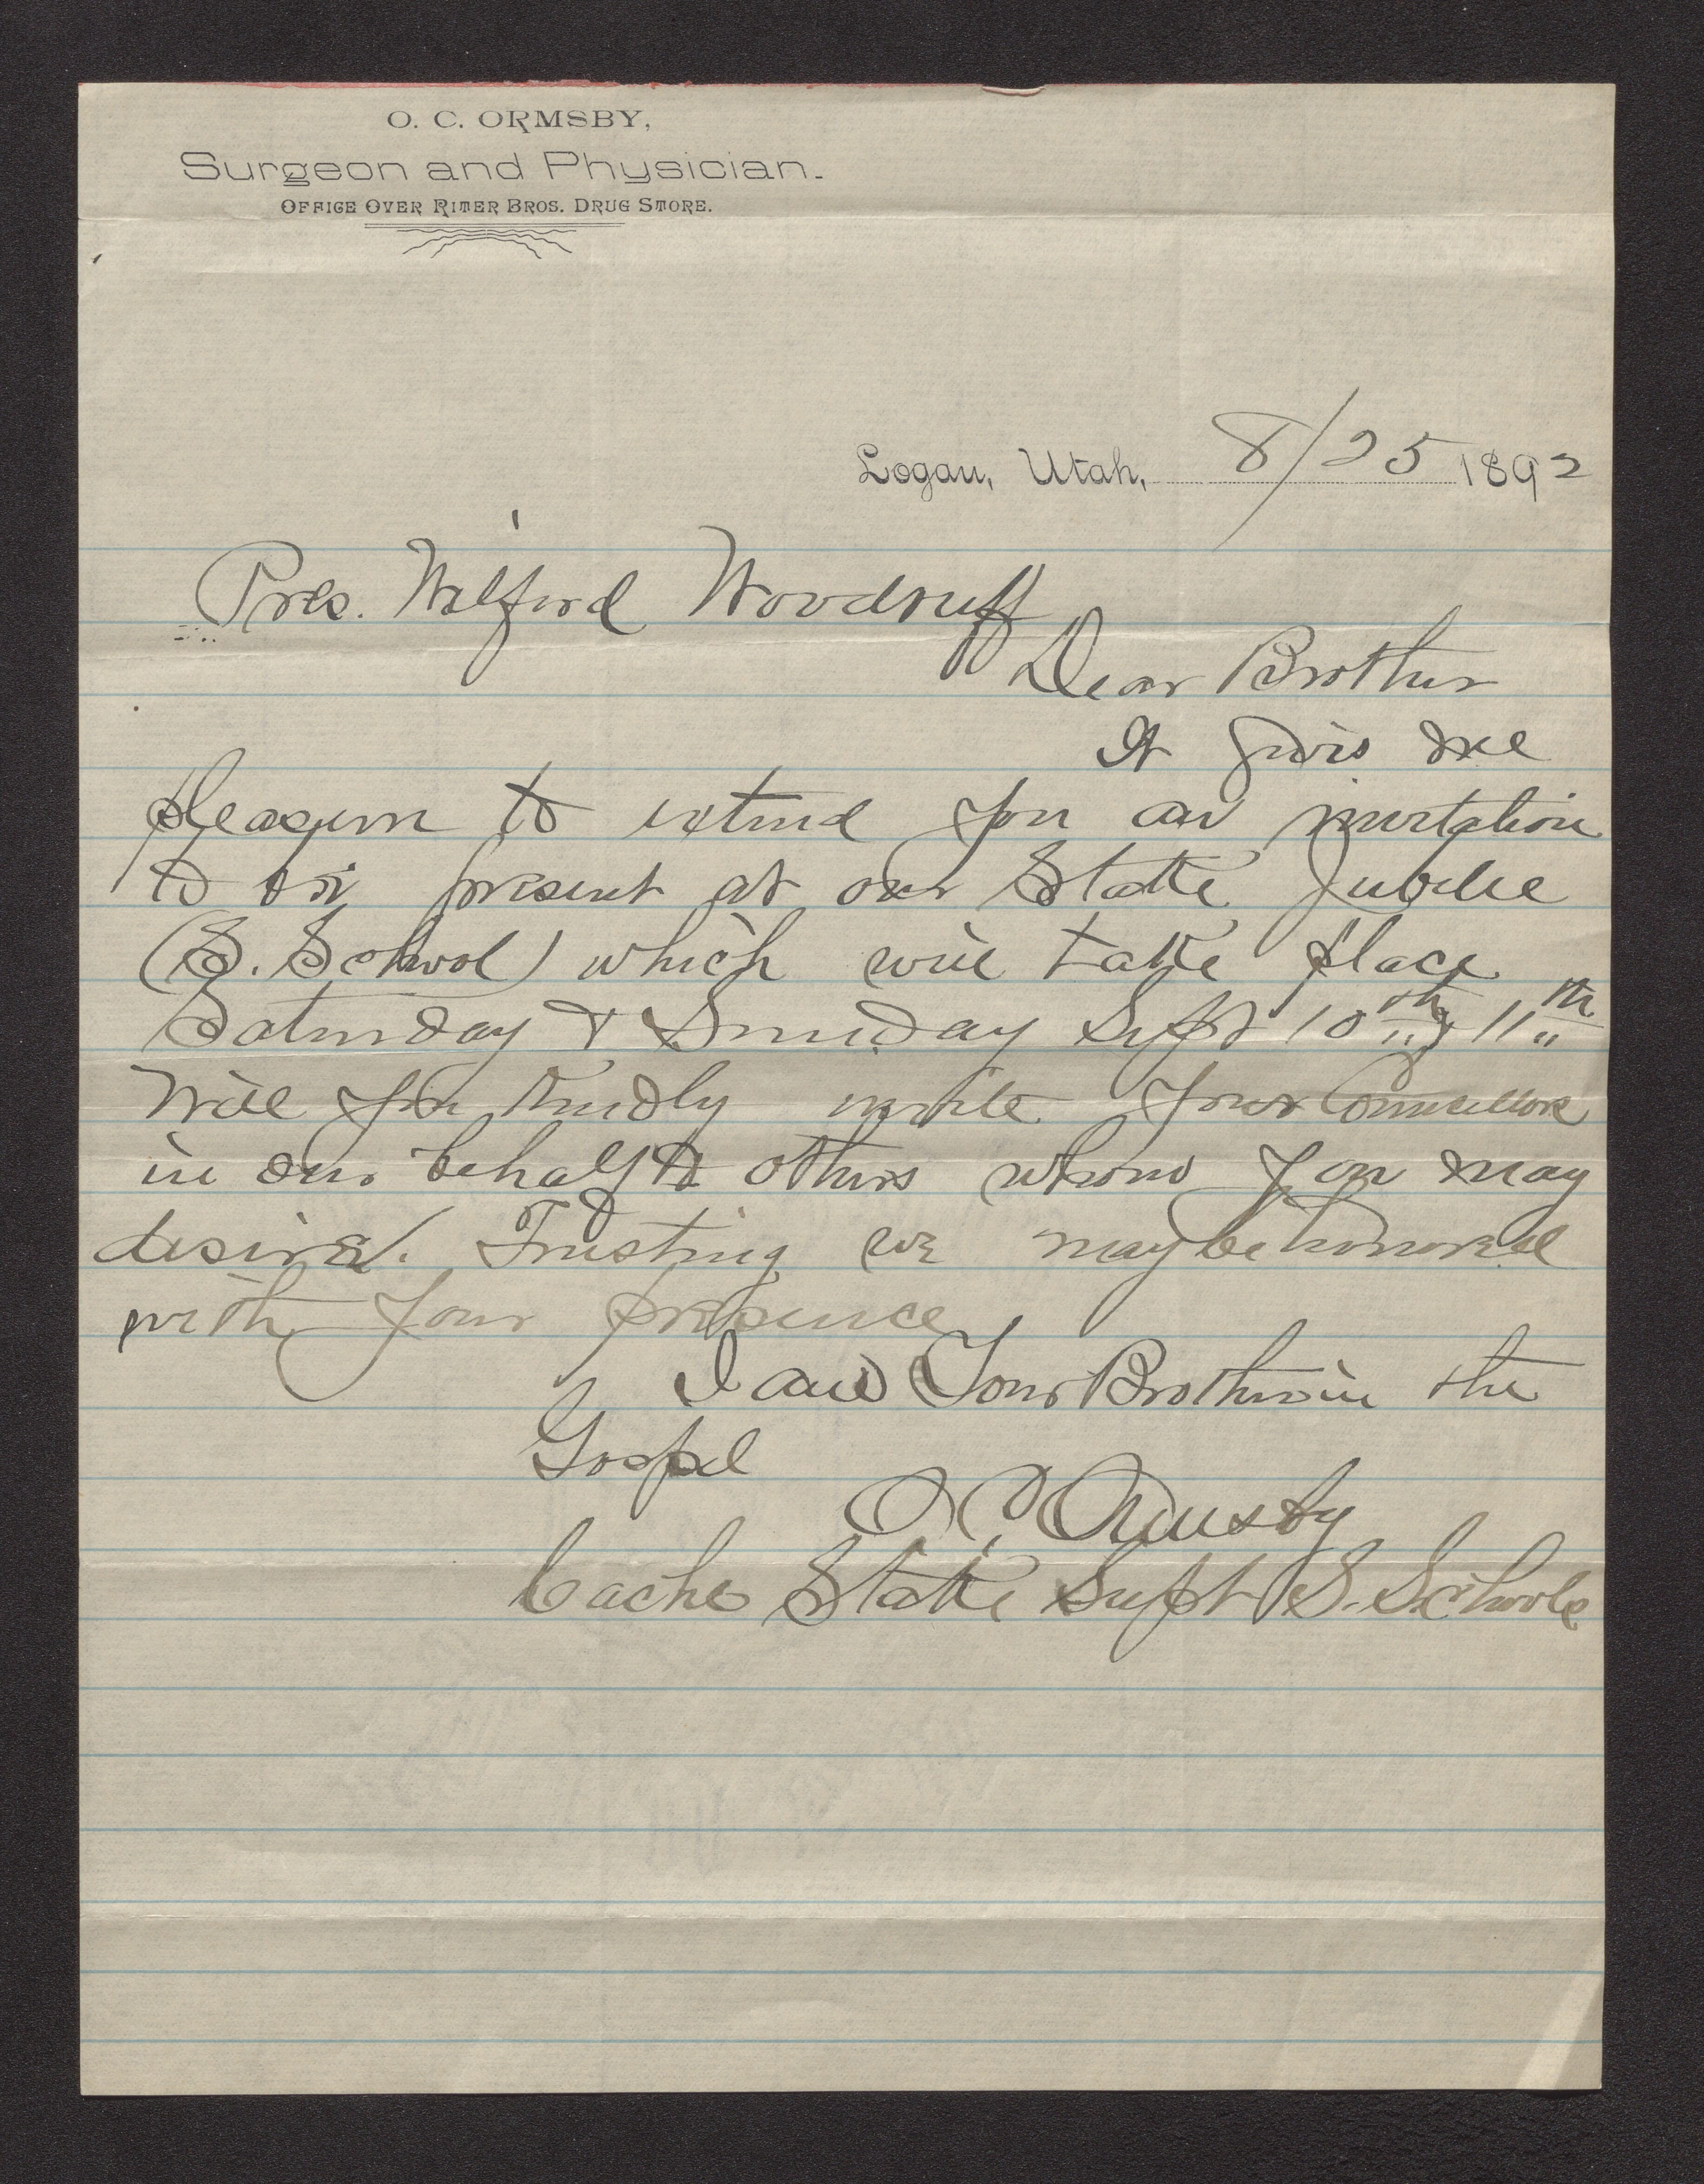 O. C. ORMSBY,
Surgeon and Physician.
OFFICE OVER RITER BROS. DRUG STORE.
Logan, Utah, 8/25 1892
Pres. Wilford Woodruff
Dear Brother
It gives me
pleasure to extend you an invitation
to be present at our Stake Jubilee
(S. School) which will take place
Saturday & Sunday Sept 10th & 11th
Will you kindly invite your Councillors
in our behalf & others whom you may
desire. Trusting we may be honored
with your presence
I am Your Brother in the
Gospel
O C Ormsby
Cache Stake Supt S. Schools